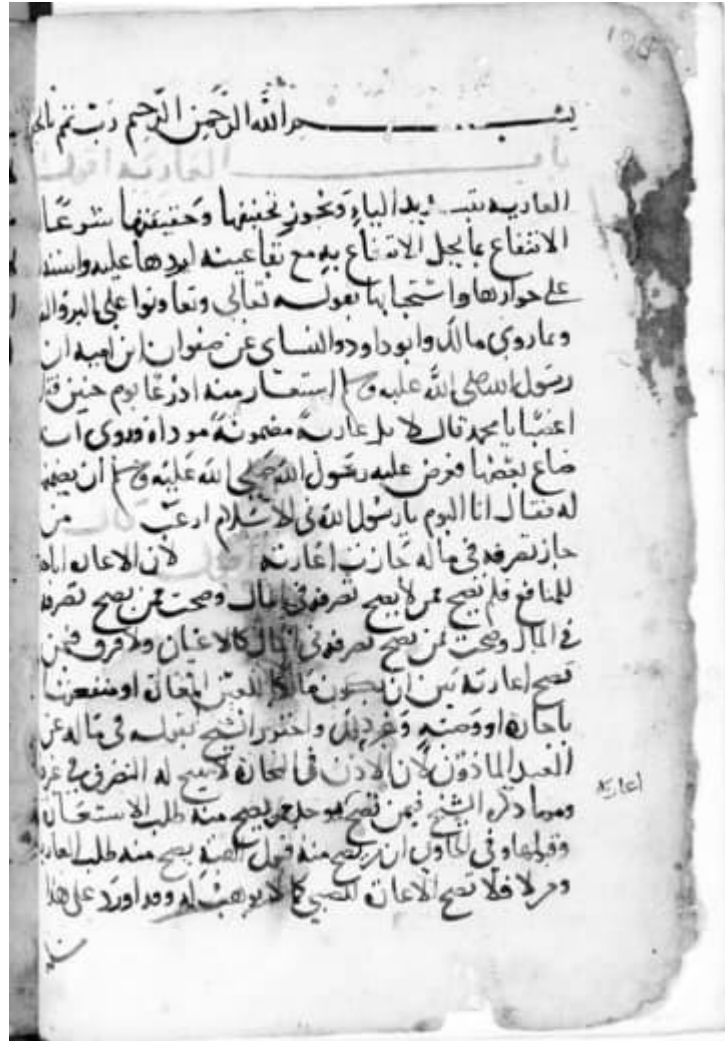 بسم الله الرحمن الرحيم رب تمم بالخير
باب العارية
العارية بتشديد الياء ويجوز تخفيفها وحقيقتها شرعا
الانتفاع بما يحل الانتفاع به مع بقا عينه ليردها عليه
على جوازها واستحبابها بقوله تعالى وتعاونوا على البر والت
وبما روى مالك وابو داود والنساى عن صفوان ابن اميه ان
رسول الله صلى الله عليه وسلم استعار منه ادرعا يوم حنين فقا
اغصبا يا محمد قال لا بل عارية مضمونة موداة وروى ان
ضاع بعضها فعرض عليه رسول الله صلى الله عليه وسلم ان يضمنه
له فقال انا اليوم يا رسول الله فى الاسلام ارغب قال من
جاز تصرفه فى ماله جازت اعارته لان الاعارة اباحة
للمنافع فلم تصح ممن لا يصح تصرفه فى المال وصحت ممن يصح تصرفه
فى المال وصحت ممن تصح تصرفه فى المال كالاعيان ولا فرق فيمن
تصح اعارته بين ان يكون مالكا للعين المعارة او منفعتها
باجارة او وصية وغير ذلك واحترز الشيخ بقوله فى ماله عن
العبد الماذون لان الاذن فى التجارة لا يبيح له التصرف فى غير
وما ذكره الشيخ فيمن تصح منه طلب الاستعارة
وقبولها وفى الحاوى ان من يصح منه قبول الهبة يصح منه طلب العارية
ومن لا فلا تصح الاعارة للصبي كما لا يوهب له وقد اورد على هذا
اعارته